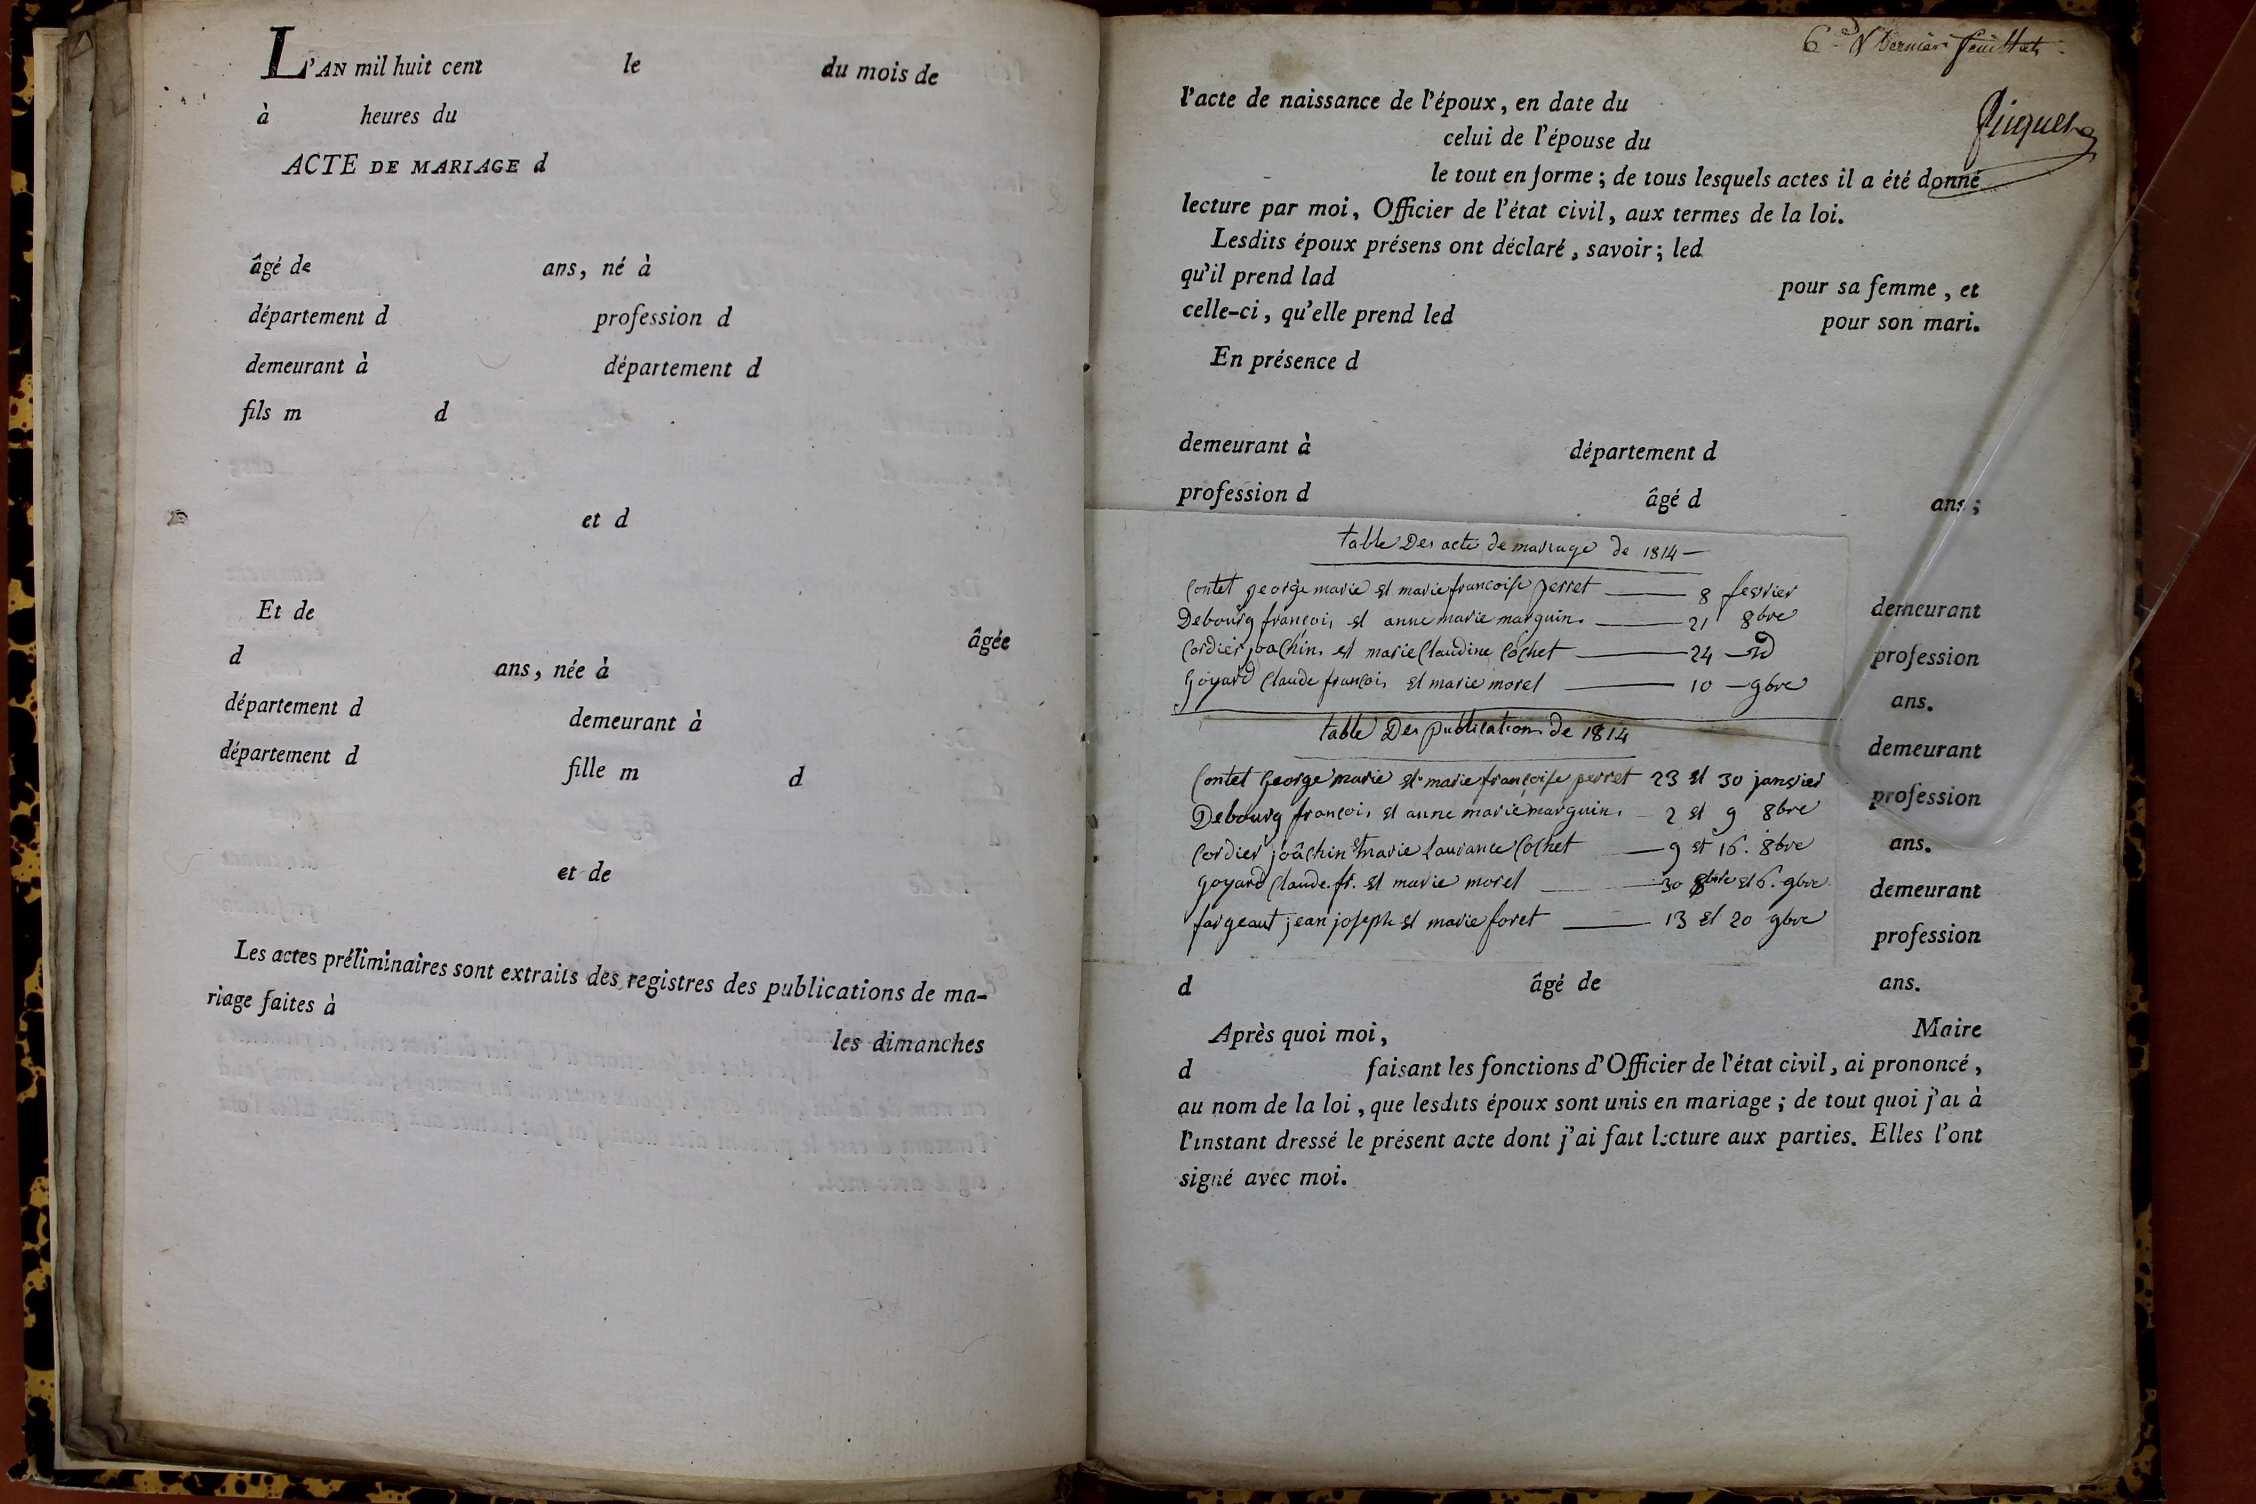 L'AN mil huit cent le du mois de
à heures du
ACTE DE MARIAGE d
âgé de ans, né à
département d profession d
demeurant à département d
fils m d
et d
Et de
âgée
d ans, née à
département d demeurant à
département d fille m d
et de
Les actes préliminaires sont extraits des registres des publications de ma-
riage faites à
les dimanches
6e & Dernier feuillet
l'acte de naissance de l'époux, en date du
celui de l'épouse du
le tout en forme; de tous lesquels actes il a été donné
lecture par moi, Officier de l'état civil, aux termes de la loi.
Lesdits époux présens ont déclaré, savoir; led
qu'il prend lad pour sa femme, et
celle-ci, qu'elle prend led pour son mari.
En présence d
demeurant à département d
profession d âgé d ans;
table Des acte de mariage de 1814 —
Contet george marie et marie francoise perret — 8 fevrier
Debourg françois et anne marie marguin. — 21 8bre
Cordier joachin et marie Claudine Cochet — 24 — d
Goyard Claude françois et marie morel — 10 — 9bre
table Des publication de 1814
Contet George marie et marie françoise perret 23 et 30 janvier
Debourg françois et anne marie marguin. — 2 et 9 8bre
Cordier joâchin et marie laurance Cochet — 9 et 16. 8bre
Goyard Claude fr. et marie morel — 30 8bre et 6. 9bre
fargeaut jean joseph et marie foret — 13 et 20 9bre
demeurant
profession
ans.
demeurant
profession
ans.
demeurant
profession
d âgé de ans.
Après quoi moi, Maire
d faisant les fonctions d'Officier de l'état civil, ai prononcé,
au nom de la loi, que lesdits époux sont unis en mariage; de tout quoi j'ai à
l'instant dressé le présent acte dont j'ai fait lecture aux parties. Elles l'ont
signé avec moi.